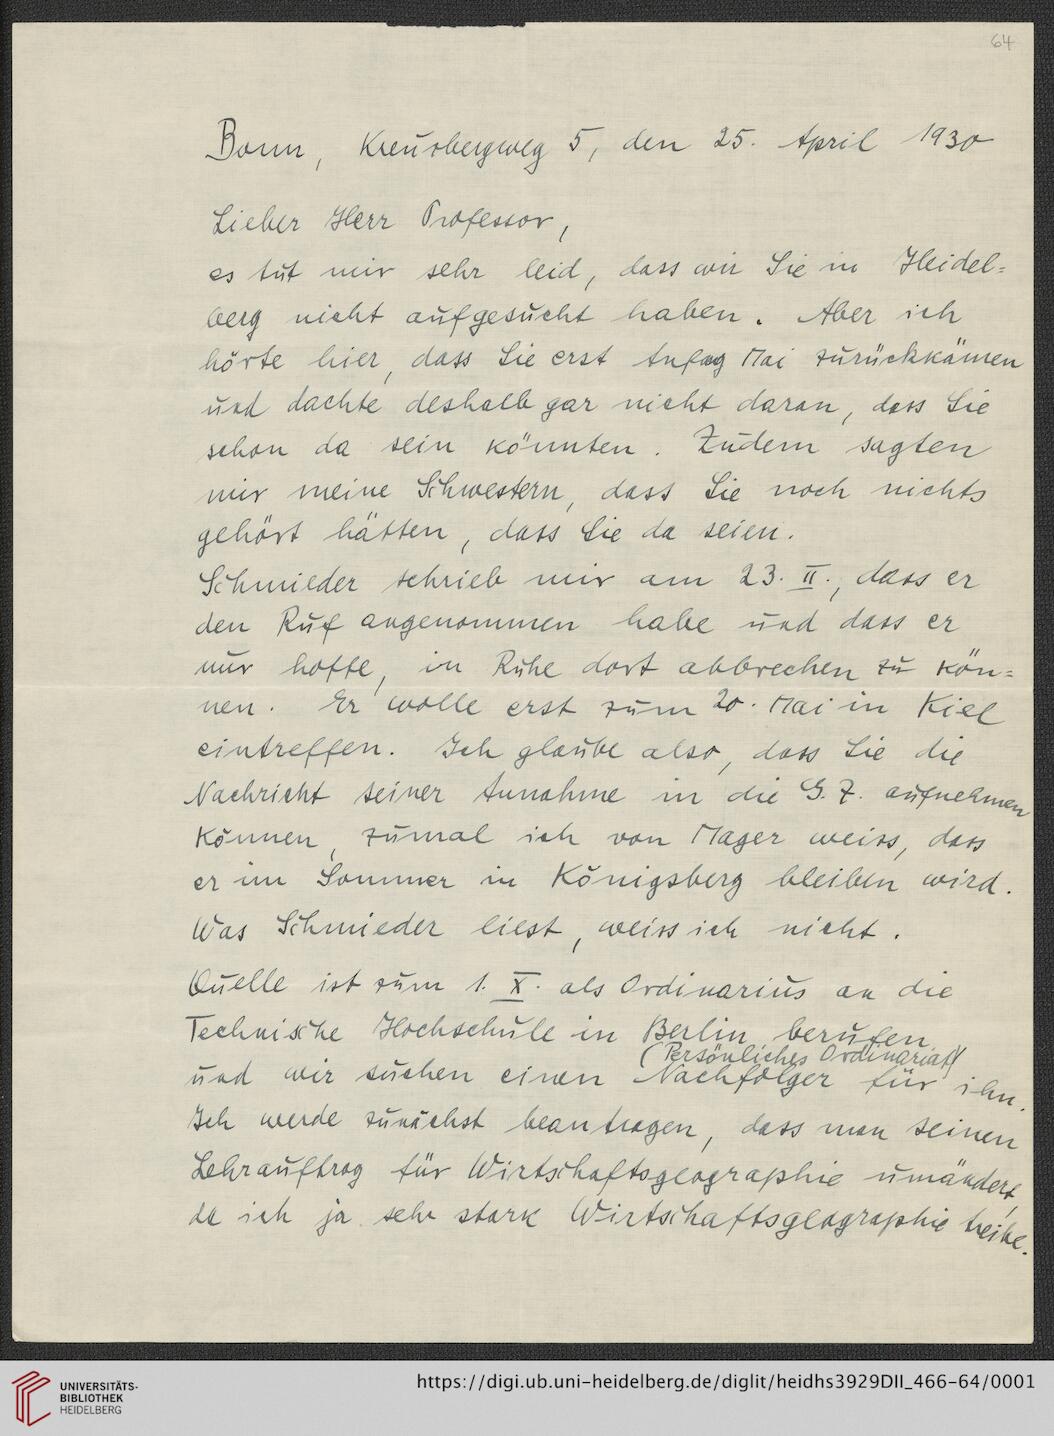 64
Bonn, Kreuzbergweg 5, den 25. April 1930
Lieber Herr Professor,
es tut mir sehr leid, dass wir Sie in Heidel=
berg nicht aufgesucht haben. Aber ich
hörte hier, dass Sie erst Anfang Mai zurückkämen
und dachte deshalb gar nicht daran, dass Sie
schon da sein könnten. Zudem sagten
mir meine Schwestern, dass Sie noch nichts
gehört hätten, dass Sie da seien.
Schmieder schrieb mir am 23. II., dass er
den Ruf angenommen habe und dass er
nur hoffe, in Ruhe dort abbrechen zu kön=
nen. Er wolle erst zum 20. Mai in Kiel
eintreffen. Ich glaube also, dass Sie die
Nachricht seiner Annahme in die G. Z. aufnehmen
können, zumal ich von Mager weiss, dass
er im Sommer in Königsberg bleiben wird.
Was Schmieder liest, weiss ich nicht.
Quelle ist zum 1. X. als Ordinarius an die
Technische Hochschule in Berlin berufen
(Persönliches Ordinariat)
und wir suchen einen Nachfolger für ihn.
Ich werde zunächst beantragen, dass man seinen
Lehrauftrag für Wirtschaftsgeographie umändert,
da ich ja sehr stark Wirtschaftsgeographie treibe.
UNIVERSITÄTS-
BIBLIOTHEK
HEIDELBERG
https://digi.ub.uni-heidelberg.de/diglit/heidhs3929DII_466-64/0001